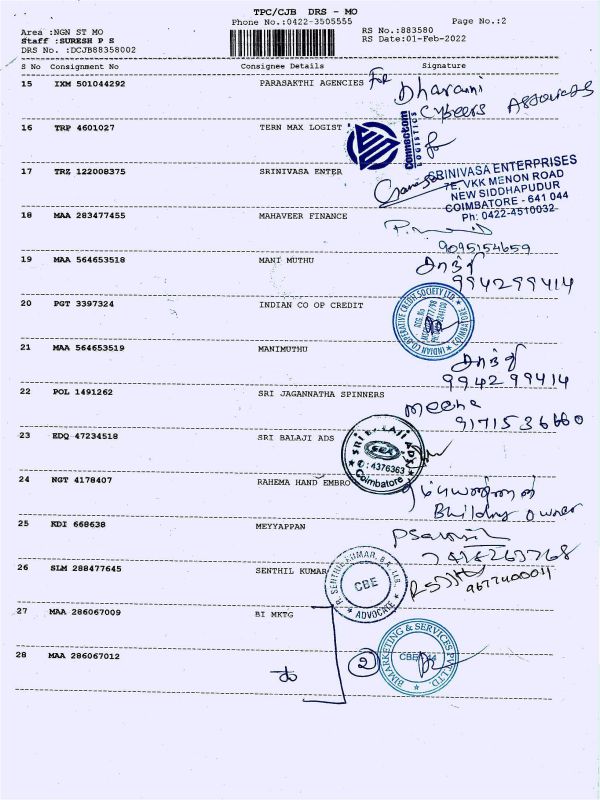 TPC/CJB DRS - MO
Phone No.:0422-3505555
Page No.:2
Area :NGN ST MO
Staff :SURESH P S
DRS No. :DCJB88358002
RS No.:883580
RS Date:01-Feb-2022
S No Consignment No Consignee Details Signature
15 IXM 501044292 PARASAKTHI AGENCIES For Dharani
Cybeers Associates
16 TRP 4601027 TERN MAX LOGIST
Connectom
LOGISTICS
17 TRZ 122008375 SRINIVASA ENTER
SRINIVASA ENTERPRISES
7E, VKK MENON ROAD
NEW SIDDHAPUDUR
COIMBATORE - 641 044
Ph: 0422-4510032
18 MAA 283477455 MAHAVEER FINANCE
9095154659
19 MAA 564653518 MANI MUTHU
994299414
20 PGT 3397324 INDIAN CO OP CREDIT
INDIAN CO-OPERATIVE CREDIT SOCIETY LTD.
21 MAA 564653519 MANIMUTHU
994299414
22 POL 1491262 SRI JAGANNATHA SPINNERS
meena
9171536660
23 EDQ 47234518 SRI BALAJI ADS
SRI BALAJI ADS
✆: 4376363
Coimbatore
24 NGT 4178407 RAHEMA HAND EMBRO
Building owner
25 KDI 668638 MEYYAPPAN
26 SLM 288477645 SENTHIL KUMAR
R. SENTHIL KUMAR, B.A., LLB.,
CBE
ADVOCATE
9677400011
27 MAA 286067009 BI MKTG
28 MAA 286067012
2
BI MARKETING & SERVICES PVT. LTD.